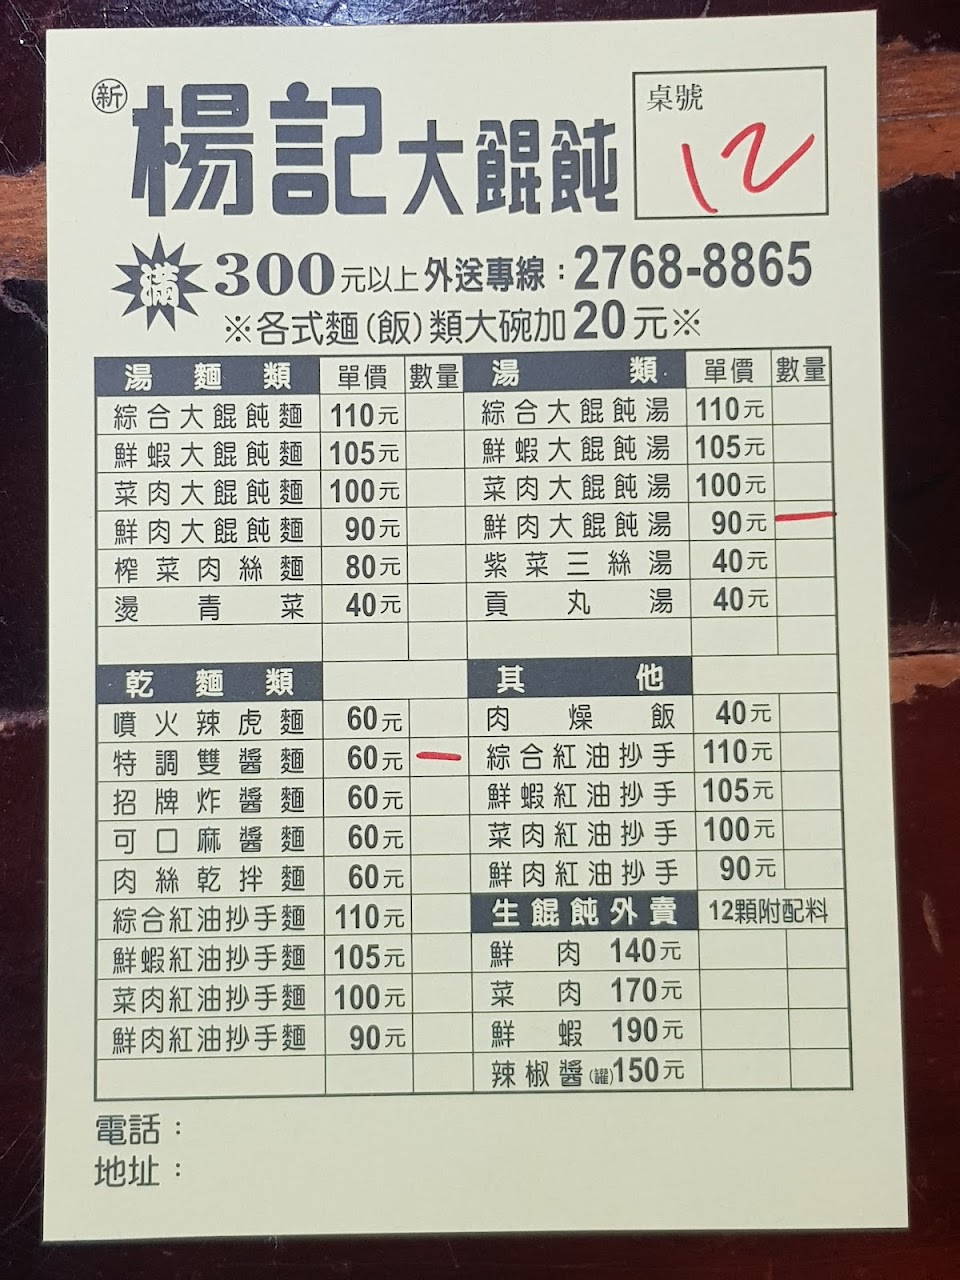 新 楊記大餛飩
桌號
12
滿300元以上外送專線：2768-8865
※各式麵(飯)類大碗加20元※
湯麵類 單價 數量
綜合大餛飩麵 110元
鮮蝦大餛飩麵 105元
菜肉大餛飩麵 100元
鮮肉大餛飩麵 90元
榨菜肉絲麵 80元
燙青菜 40元
乾麵類
噴火辣虎麵 60元
特調雙醬麵 60元 一
招牌炸醬麵 60元
可口麻醬麵 60元
肉絲乾拌麵 60元
綜合紅油抄手麵 110元
鮮蝦紅油抄手麵 105元
菜肉紅油抄手麵 100元
鮮肉紅油抄手麵 90元
湯類 單價 數量
綜合大餛飩湯 110元
鮮蝦大餛飩湯 105元
菜肉大餛飩湯 100元
鮮肉大餛飩湯 90元 一
紫菜三絲湯 40元
貢丸湯 40元
其他
肉燥飯 40元
綜合紅油抄手 110元
鮮蝦紅油抄手 105元
菜肉紅油抄手 100元
鮮肉紅油抄手 90元
生餛飩外賣 12顆附配料
鮮肉 140元
菜肉 170元
鮮蝦 190元
辣椒醬(罐)150元
電話：
地址：